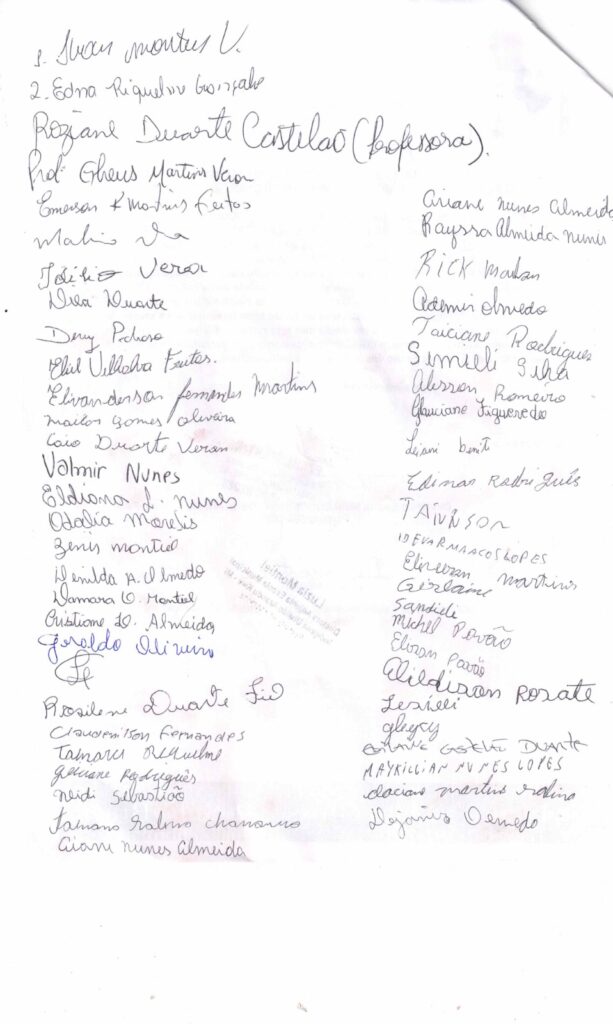 1. Juan Montiel V.
2. Edna Riquelme Gonçalves
Roziane Duarte Castelão (Professora).
Prof: Gheus Martins Veron
Emerson K Martins Freitas
Veron
Dila Duarte
Dery Pedroso
Eliel Villalva Freitas.
Elivanderson fernandes Martins
mailos Gomes oliveira
Caio Duarte Veron
Valmir Nunes
Eldiana L. nunes
Odalia Morelis
Zenis montiel
Denilda A. Olmedo
Damara O. Montiel
Cristiane D. Almeida
Geraldo Oliveira
Rosilene Duarte
Claudemilson Fernandes
Tamares Riquelme
Geliane Rodrigues
Neidi Sebastião
Fabiano
Ariane nunes Almeida
Ariane nunes almeida
Rayssa Almeida nunes
RICK
Ademir olmedo
Taiciane Rodrigues
Simieli Silva
Alisson Romeiro
Glauciane Figueredo
benit
Edimar Rodriguês
TAINNSON
LOPES
Elivan martins
Gislaine
Sandieli
Michel Pavão
Elivan Pavão
Rosate
Lesieli
gleycy
Duarte
MAYKILLIAN NUNES LOPES
daciane martins
Dejanira Olmedo
Luzia Montiel